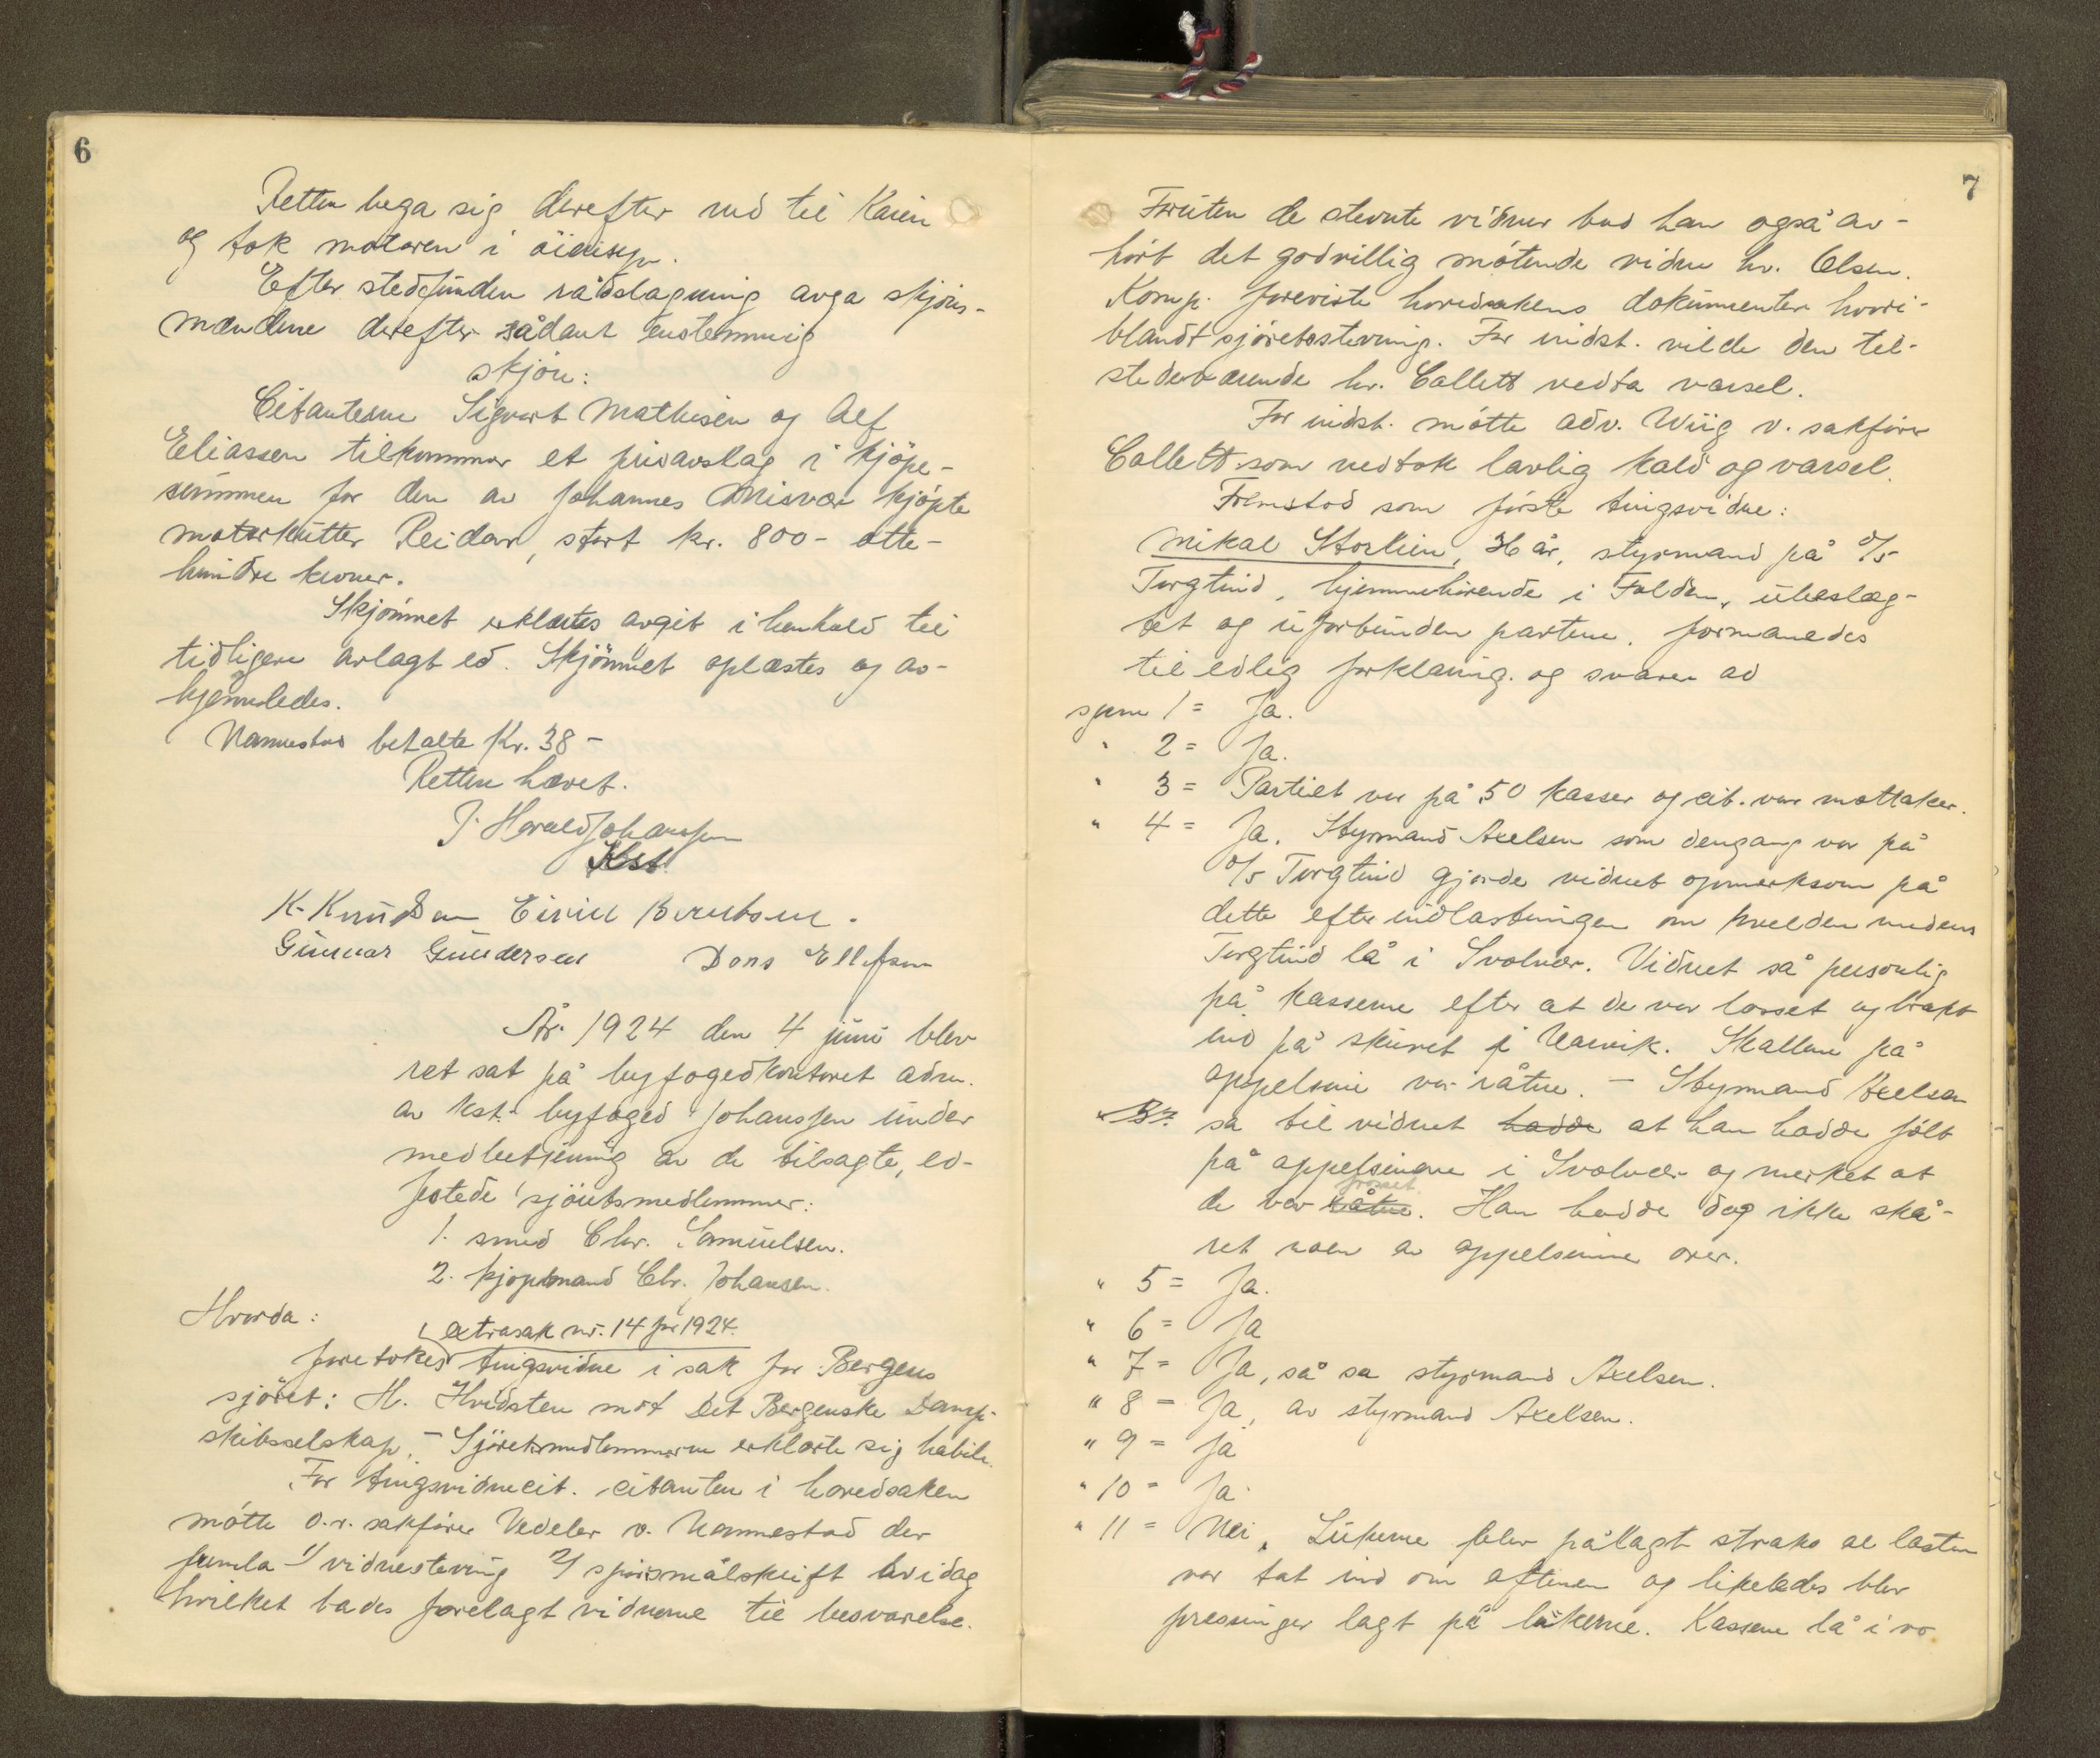 6
Retten bega sig derefter ned til Kaien
og tok motoren i öiesyn.
Efter stedfunden rådslagning avga skjöns-
mændene derefter sådant enstemmig
skjön:
Citanterne Sigvart Mathisen og Alf
Eliassen tilkommer et prisavslag i kjöpe-
summen for den av Johannes Misvær kjöpte
motorkutter Reidar, stort kr. 800- otte-
hundre kroner.
Skjönnet erklærtes avgit i henhold til
tidligere avlagt ed. Skjönnet oplæstes og av-
hjemledes.
Nannestad betalte Kr. 38-
Retten hævet.
J. Harald Johanssen
Kst.
K. Knudsen Eivin Berntsen.
Gunnar Gundersen Dons Ellefsen
År 1924 den 4 juni blev
ret sat på byfogedkontoret adm.
av kst. byfoged Johanssen under
medbetjening av de tilsagte, ed-
fæstede sjöretsmedlemmer:
1. smed Chr. Samuelsen.
2. kjøpmand Chr. Johansen.
Hvorda:
extrasak nr. 14 for 1924.
foretokes tingsvidne i sak for Bergens
sjöret: H. Hvidsten mot Det Bergenske Damp-
skibsselskap. - Sjöretsmedlemmerne erklærte sig habile.
For tingsvidnecit. citanten i hovedsaken
mötte o.r. sakförer Vedeler v. Nannestad der
fremla 1/ vidnestevning 2/ spörsmålskrift av idag
hvilket bades forelagt vidnerne til besvarelse.
7
Foruten de stevnte vidner bad han også av-
hört det godvillig mötende vidne hr. Olsen.
Komp. foreviste hovedsakens dokumenter hvori-
blandt sjöretsstevning. For indst. vilde den til-
stedeværende hr. Collett vedta varsel.
For indst. mötte adv. Wiig v. sakförer
Collett som vedtok lovlig kald og varsel.
Fremstod som förste tingsvidne:
Mikal Storlien, 36 år, styrmand på D/S
Torgtind, hjemmehörende i Folden, ubeslæg-
tet og uforbunden partene. formanedes
til edlig forklaring. og svarer ad
spm 1 = Ja.
" 2 = Ja.
" 3 = Partiet var på 50 kasser og cit. var mottaker.
" 4 = Ja. Styrmand Axelsen som dengang var på
D/S Torgtind gjorde vidnet opmerksom på
dette efter indlastningen om kvelden medens
Torgtind lå i Svolvær. Vidnet så personlig
på kasserne efter at de var losset og brakt
ind på skuret i Narvik. Skallene på
appelsine var råtne. - Styrmand Axelsen
sa til vidnet hadde at han hadde fölt
på appelsinene i Svolvær og merket at
frosset
de var råtne. Han hadde dog ikke skå-
ret noen av appelsinene over.
" 5 = Ja.
" 6 = Ja
" 7 = Ja, så sa styrmand Axelsen.
" 8 = Ja, av styrmand Axelsen.
" 9 = Ja
" 10 = Ja
" 11 = Nei. Lukerne blev pålagt straks al lasten
var tat ind om aftenen og likeledes blev
pressinger lagt på lukerne. Kassene lå i ro